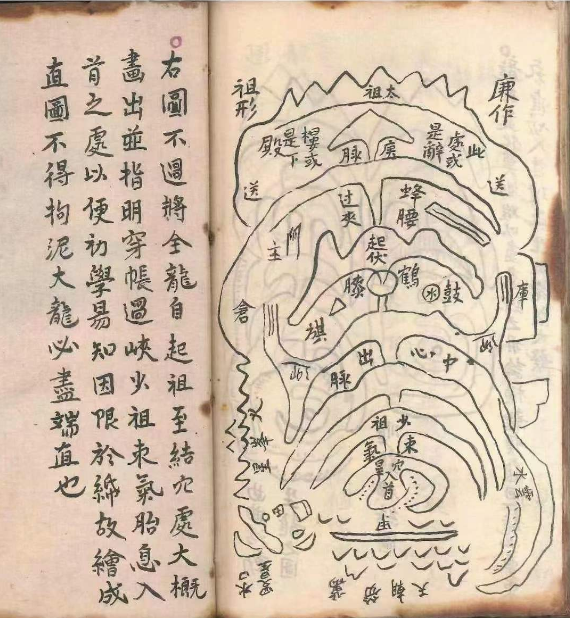 廉作
祖形
太祖
此
處或
是辭
樓或
是下
殿
脉
送
送
蜂腰
过夾
起伏
鶴膝
鼓
旗
庫
倉
中心
出脉
少祖
束氣
穴星
入首
水
右圖不過將全龍自起祖至結穴處大概
畫出並指明穿帳過峽少祖束氣胎息入
首之處以便初學易知因限於紙故繪成
直圖不得拘泥大龍必盡端直也